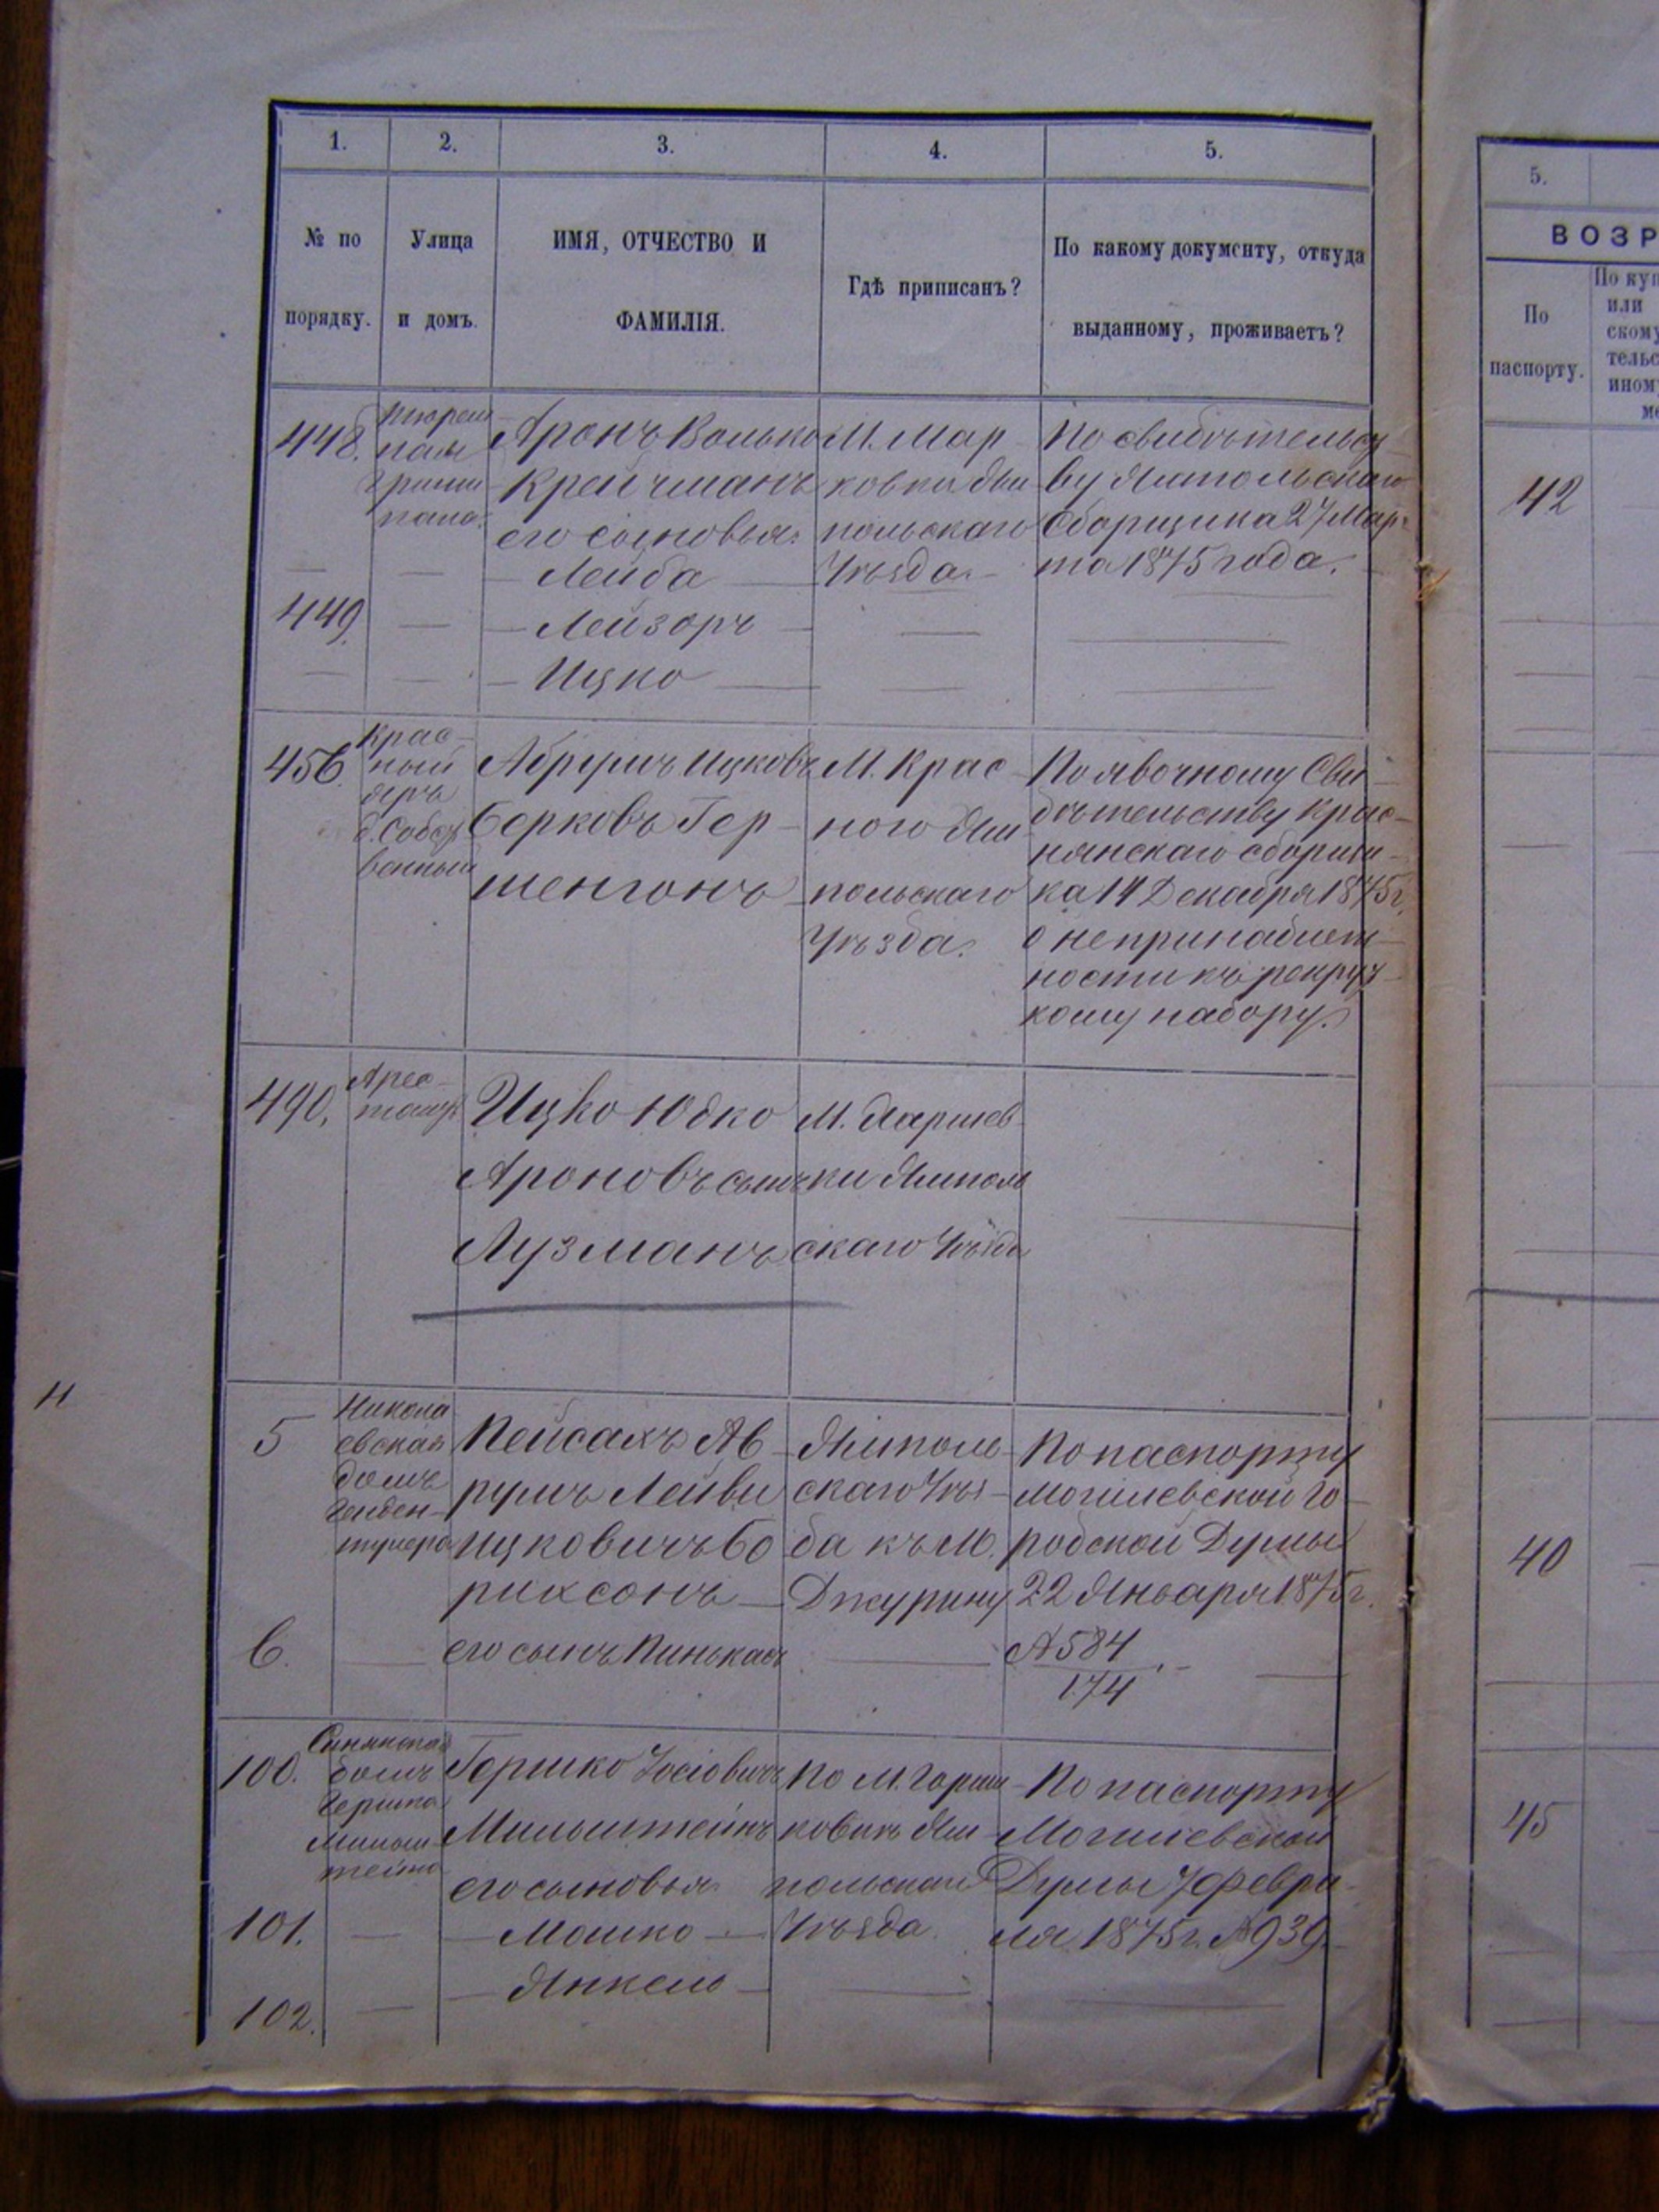 1. 2. 3. 4. 5.
№ по порядку.
Улица и домъ.
ИМЯ, ОТЧЕСТВО И ФАМИЛІЯ.
Гдѣ приписанъ?
По какому документу, откуда выданному, проживаетъ?
448.
Тюрем
ная
Аронъ Волько
Крейчманъ
его сыновья:
— Лейба —
М. Мар
ковки Ям
польскаго
Уѣзда.
По свидѣтельст
ву Ямпольскаго
Сборщика 27 Мар
та 1875 года.
449.
— Лейзоръ —
— Ицко —
456.
Крас-
ный
яръ
д. Собст
венный
Абрумъ Ицковъ
Берковъ Гер-
шенгонъ
М. Крас
ного Ям
польскаго
Уѣзда.
По явочному Сви-
дѣтельству Крас-
нянскаго сборщи-
ка 14 Декабря 1875 г.
о непринадлеж-
ности къ рекрут-
кому набору.
490.
Арес-
тантъ
Ицко Юдко
Ароновъ сынъ
Лузманъ
М.
ки Ямполь
скаго Уѣзда
н
5
Никола
евская
домъ
Пейсахъ Аб
румъ Лейви
Ицковичъ Бо
риксонъ —
Ямполь-
скаго Уѣз-
да къ М.
Джурину
По паспорту
Могилевской Го-
родской Думы
22 Января 1875 г.
№ 584
174
6.
его сынъ Пинькасъ
100.
домъ
Гершка
Мильш
тейна
Гершко Іосіовичъ
Мильштейнъ
его сыновья
По М.
ковкѣ Ям-
польскаго
Уѣзда.
По паспорту
Могилевской
Думы 7 Февра-
ля 1875 г. № 939.
101.
— Мошко —
102.
— Янкель —
5.
ВОЗР
По
паспорту.
По куп
или
скому
тельс
иному
ме
42
40
45